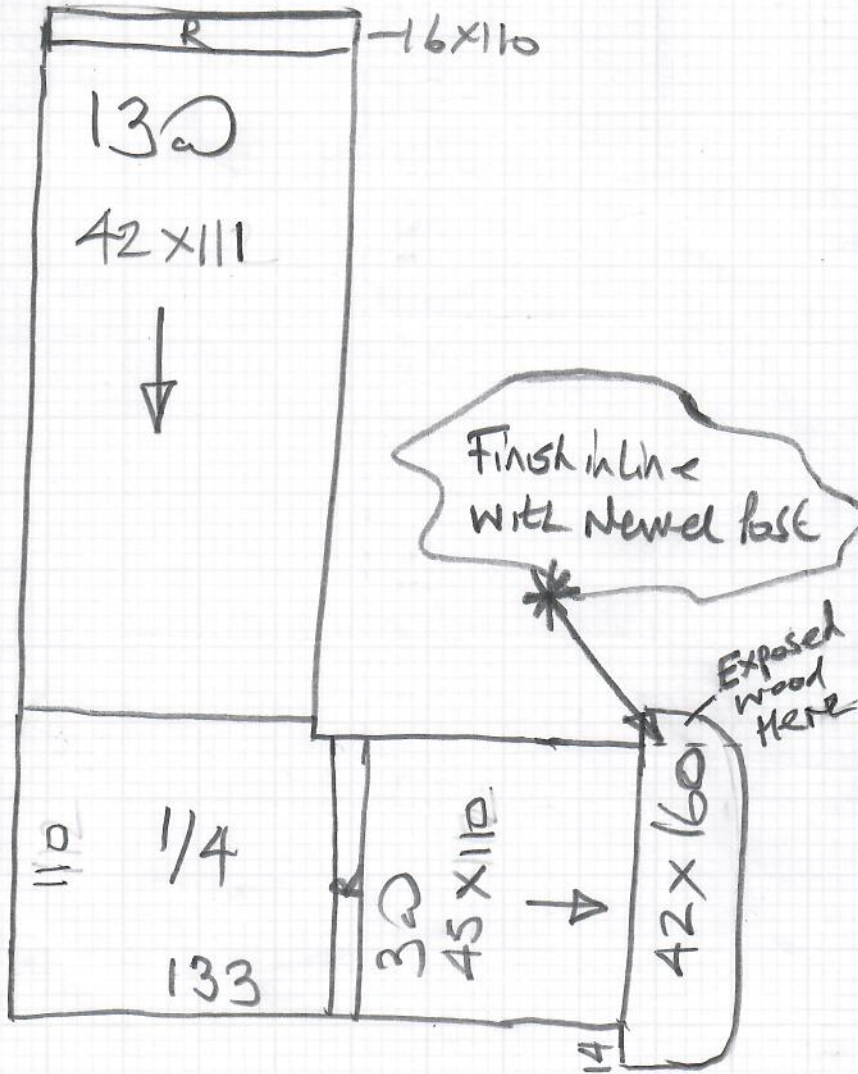 R
-16x110
13@
42 x 111
Finish in Line
with Newel Post
Exposed
wood
Here
110
1/4
133
R
3@
45 x 110
42 x 160
14